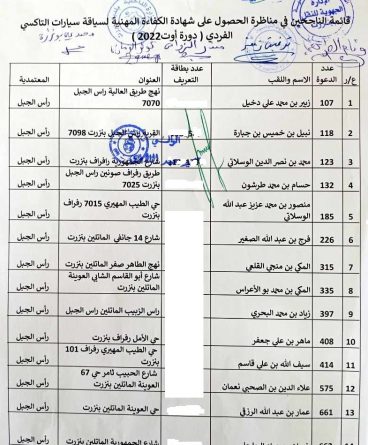 قائمة الناجحين في مناظرة الحصول على شهادة الكفاءة المهنية لسياقة سيارات التاكسي
الفردي ( دورة أوت2022 )
ع/ر عدد الدعوة الاسم واللقب عدد بطاقة التعريف العنوان المعتمدية
1 107 زبير بن محمد علي دخيل نهج طريق العالية راس الجبل 7070 رأس الجبل
2 118 نبيل بن خميس بن جبارة القرية راس الجبل بنزرت 7098 رأس الجبل
3 123 محمد بن نصر الدين الوسلاتي الجمهورية رافراف بنزرت رأس الجبل
4 132 حسام بن محمد طرشون طريق رفراف صونين راس الجبل بنزرت 7025 رأس الجبل
5 185 منصور بن محمد عزيز عبد الله الوسلاتي حي الطيب المهيري 7015 رفراف بنزرت رأس الجبل
6 226 فرج بن عبد الله الصغير شارع 14 جانفي الماتلين بنزرت رأس الجبل
7 315 المكي بن منجي القلعي نهج الطاهر صفر الماتلين بنزرت رأس الجبل
8 335 المكي بن محمد بو الأعراس شارع أبو القاسم الشابي العوينة الماتلين بنزرت رأس الجبل
9 397 زياد بن محمد البحري راس الزبيب الماتلين راس الجبل رأس الجبل
10 408 ماهر بن علي جعفر حي الأمل رفراف بنزرت رأس الجبل
11 414 سيف الله بن علي قاسم حي الطيب المهيري رفراف 101 بنزرت رأس الجبل
12 575 علاء الدين بن الصحبي نعمان شارع الحبيب ثامر حي 67 العوينة الماتلين بنزرت رأس الجبل
13 661 عمار بن عبد الله الرزقي حي العوينة الماتلين بنزرت رأس الجبل
شارع الجمهورية الماتلين بنزرت